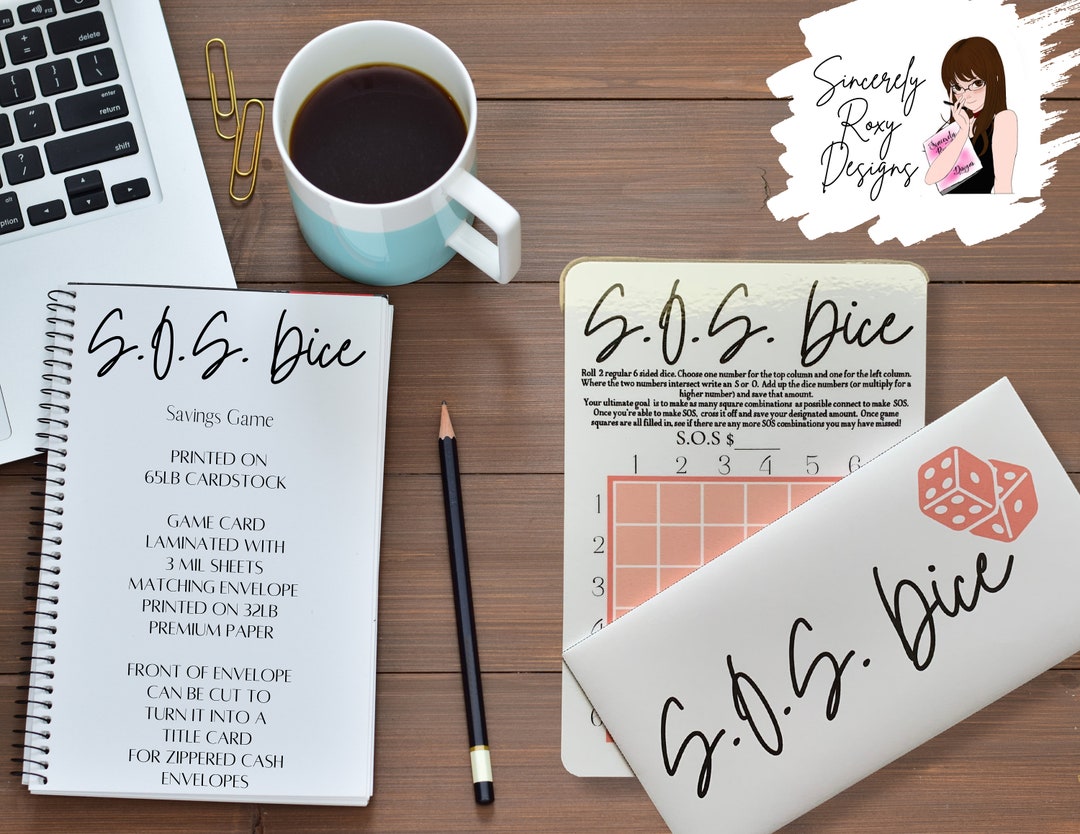 delete
enter
return
shift
option
Sincerely
Roxy
Designs
S.O.S. Dice
Savings Game
PRINTED ON
65LB CARDSTOCK
GAME CARD
LAMINATED WITH
3 MIL SHEETS
MATCHING ENVELOPE
PRINTED ON 32LB
PREMIUM PAPER
FRONT OF ENVELOPE
CAN BE CUT TO
TURN IT INTO A
TITLE CARD
FOR ZIPPERED CASH
ENVELOPES
S.O.S. Dice
Roll 2 regular 6 sided dice. Choose one number for the top column and one for the left column.
Where the two numbers intersect write an S or O. Add up the dice numbers (or multiply for a
higher number) and save that amount.
Your ultimate goal is to make as many square combinations as possible connect to make SOS.
Once you're able to make SOS, cross it off and save your designated amount. Once game
squares are all filled in, see if there are any more SOS combinations you may have missed!
S.O.S $____
1 2 3 4 5 6
1
2
3
S.O.S. Dice